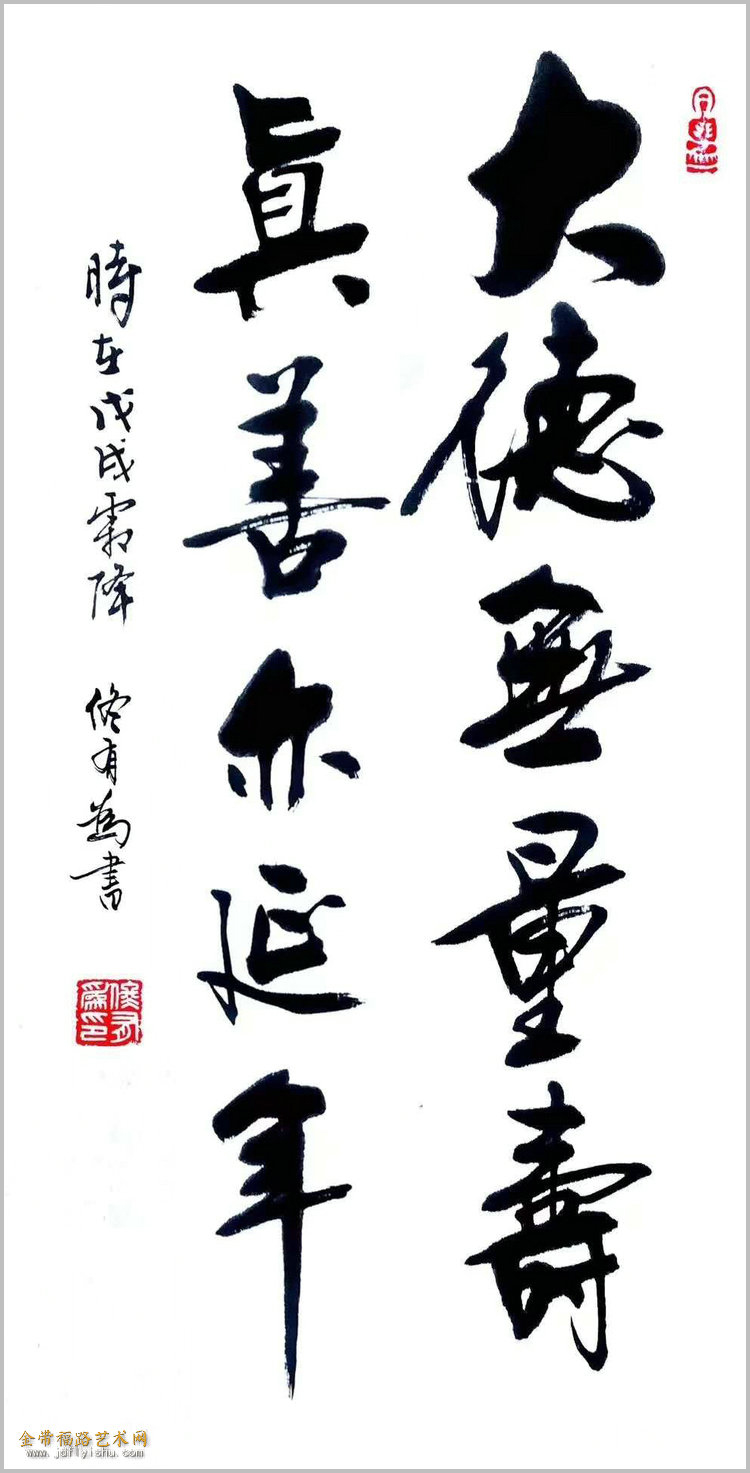 大德無量壽
眞善亦延年
時在戊戌霜降 有為書
金带福路艺术网
www.jdflyishu.com